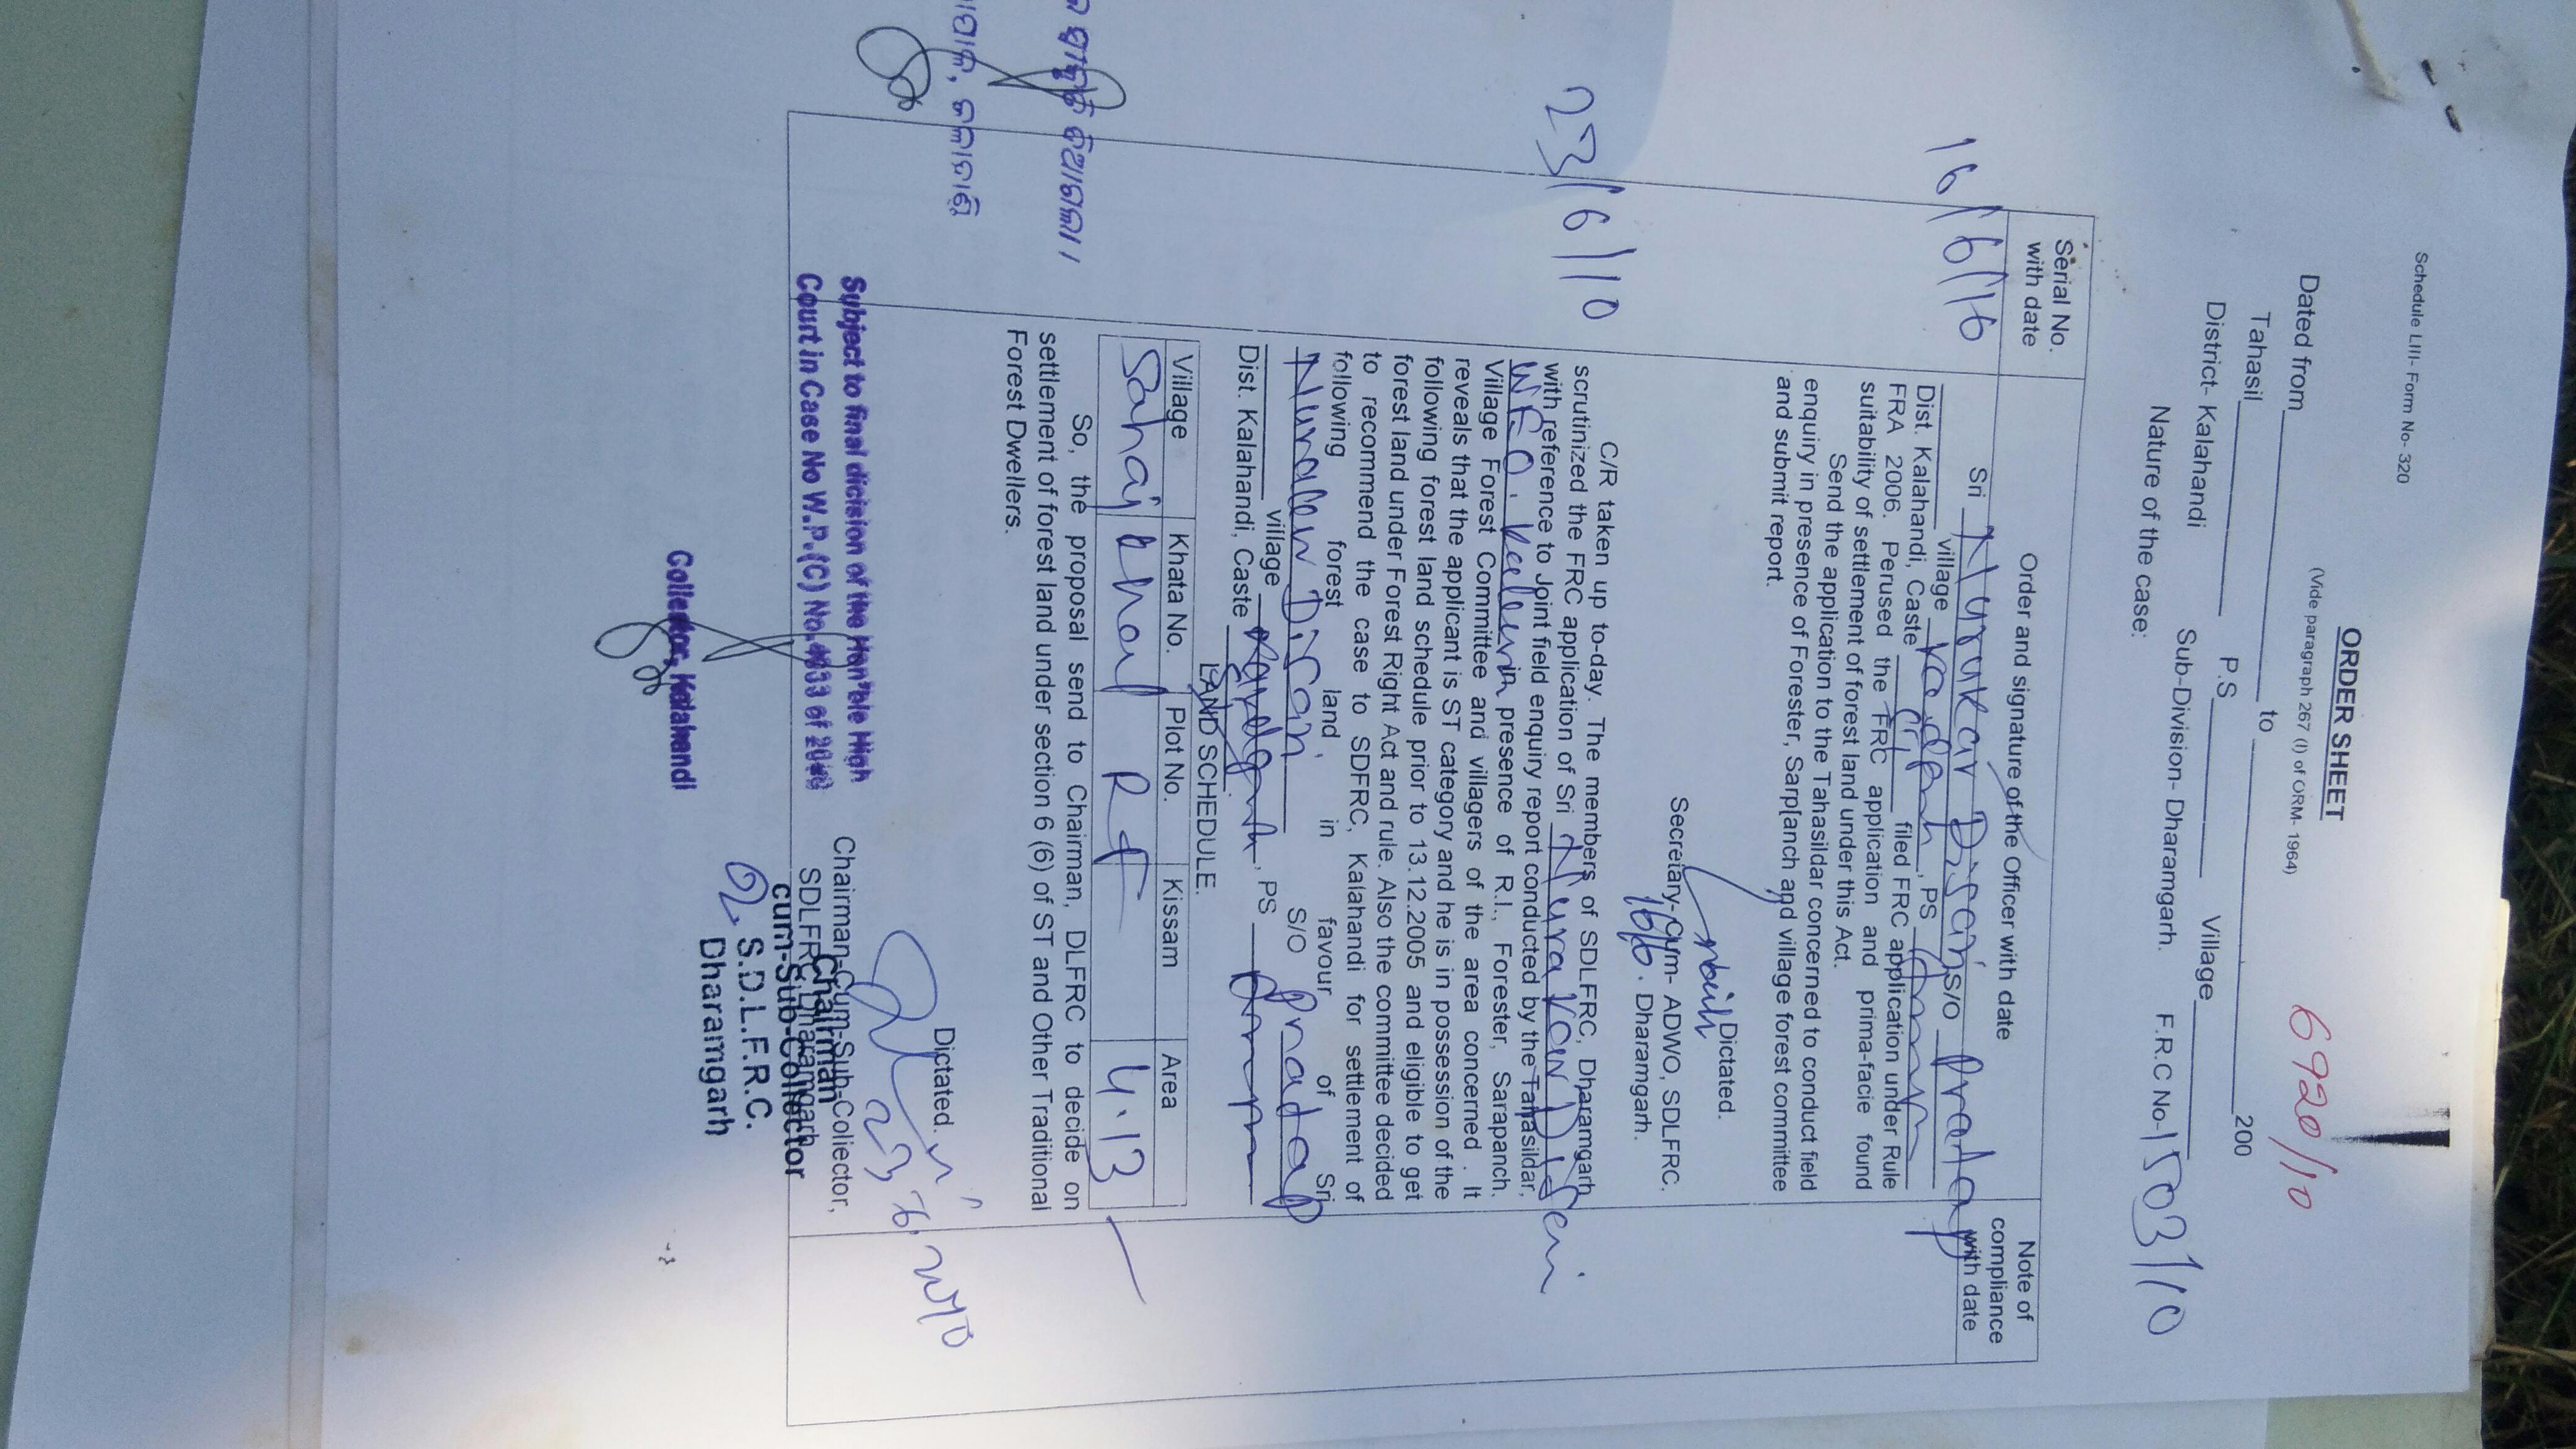 Schedule LIII- Form No- 320
ORDER SHEET
(Vide paragraph 267 (I) of ORM- 1964)
6920/10
Dated from to 200
Tahasil P.S Village
District- Kalahandi Sub-Division- Dharamgarh. F.R.C No-1503/10
Nature of the case:
Serial No. with date
Order and signature of the Officer with date
Note of compliance with date
16/6/10
Sri Disari S/O Pratap
village , PS
Dist. Kalahandi, Caste filed FRC application under Rule
FRA 2006. Perused the FRC application and prima-facie found
suitability of settlement of forest land under this Act.
Send the application to the Tahasildar concerned to conduct field
enquiry in presence of Forester, Sarp[anch and village forest committee
and submit report.
Dictated.
Secretary-Cum- ADWO, SDLFRC.
16/6. Dharamgarh.
23/6/10
C/R taken up to-day. The members of SDLFRC, Dharamgarh
scrutinized the FRC application of Sri
with reference to Joint field enquiry report conducted by the Tahasildar,
presence of R.I., Forester, Sarapanch,
Village Forest Committee and villagers of the area concerned . It
reveals that the applicant is ST category and he is in possession of the
following forest land schedule prior to 13.12.2005 and eligible to get
forest land under Forest Right Act and rule. Also the committee decided
to recommend the case to SDFRC, Kalahandi for settlement of
following forest land, in favour of Sri
Disari S/O Pratap
village , PS
Dist. Kalahandi, Caste
LAND SCHEDULE.
Village Khata No. Plot No. Kissam Area
Sahajkhol RF 4.13
So, the proposal send to Chairman, DLFRC to decide on
settlement of forest land under section 6 (6) of ST and Other Traditional
Forest Dwellers.
Dictated.
23/6/2010
Chairman-Cum-Sub-Collector,
SDLFRC, Dharamgarh
Chairman
cum-Sub-Collector
S.D.L.F.R.C.
Dharamgarh
Subject to final dicision of the Hon'ble High
Court in Case No W.P.(C) No.4933 of 2008
Collector, Kalahandi